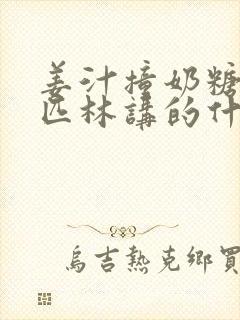 姜汁撞奶糖
匹林講的什
烏吉熱克鄉買